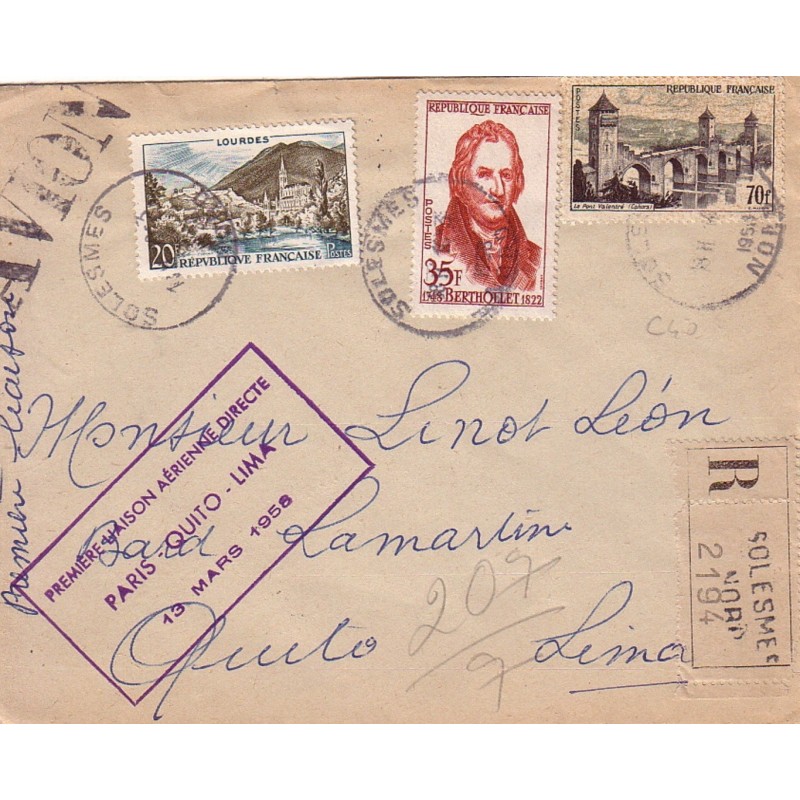 AVION
LOURDES
20F
RÉPUBLIQUE FRANÇAISE
POSTES
RÉPUBLIQUE FRANÇAISE
POSTES
35F
1748 BERTHOLLET 1822
RÉPUBLIQUE FRANÇAISE
POSTES
Le Pont Valentré (Cahors)
70f
SOLESMES
SOLESMES
1958
C40
Première liaison
PREMIÈRE LIAISON AÉRIENNE DIRECTE
PARIS - QUITO - LIMA
13 MARS 1958
Monsieur Linot Léon
Bard Lamartine
Quito Lima
207
9
R
SOLESMES
NORD
2194